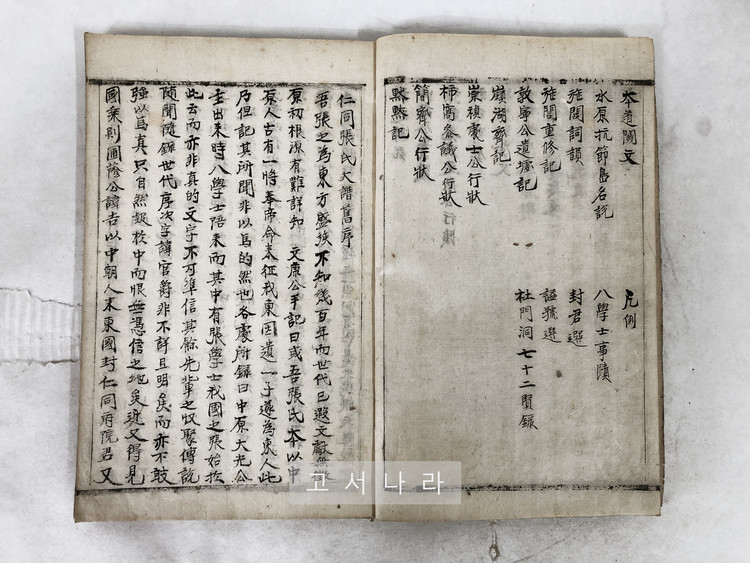 本道關文　凡例
水原抗節島名說　八學士事蹟
旌閭詞韻　封君選
旌閭重修記　謚號選
敦寧公遺墟記　杜門洞七十二賢錄
嶺湖齋記
崇禎處士公行狀
柿窩參議公行狀
簡齋公行狀
默默記
仁同張氏大譜舊序
吾張之為東方盛族不知幾百年而世代已遐文獻無
原初根源有難詳知　文康公手記曰或吾張氏本以中
原人古有一將奉帝命來征我東因遺一子遂為東人此
乃但記其所聞非以為的然也各處所錄曰中原大光公
主出來時八學士陪來而其中有張學士我國之張始於
此云而亦非真的文字不可準信其餘先輩之收聚傳說
隨聞隨錄世代序次字諱官爵非不詳且明矣而亦不敢
強以為真只自然疑於中而恨無憑信之地矣近又得見
國乘別圃蔭公諱吉以中朝人來東國封仁同府院君又
고서나라